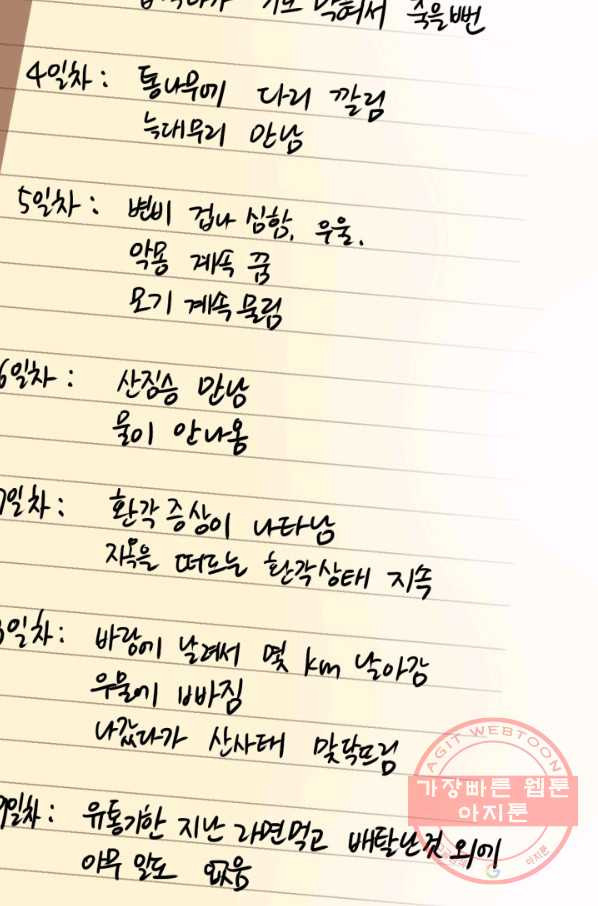 기도 막혀서 죽을뻔
4일차: 통나무에 다리 깔림
늑대무리 만남
5일차: 변비 겁나 심함. 우울.
악몽 계속 꿈
모기 계속 물림
6일차: 산짐승 만남
물이 안나옹
7일차: 환각 증상이 나타남
지옥을 떠드는 환각상태 지속
8일차: 바람에 날려서 몇 km 날아감
우물에 빠짐
나갔다가 산사태 맞닥뜨림
9일차: 유통기한 지난 라면먹고 배탈난것 외에
아무 일도 없음
AGIT WEBTOON
가장빠른 웹툰
아지툰
아지툰